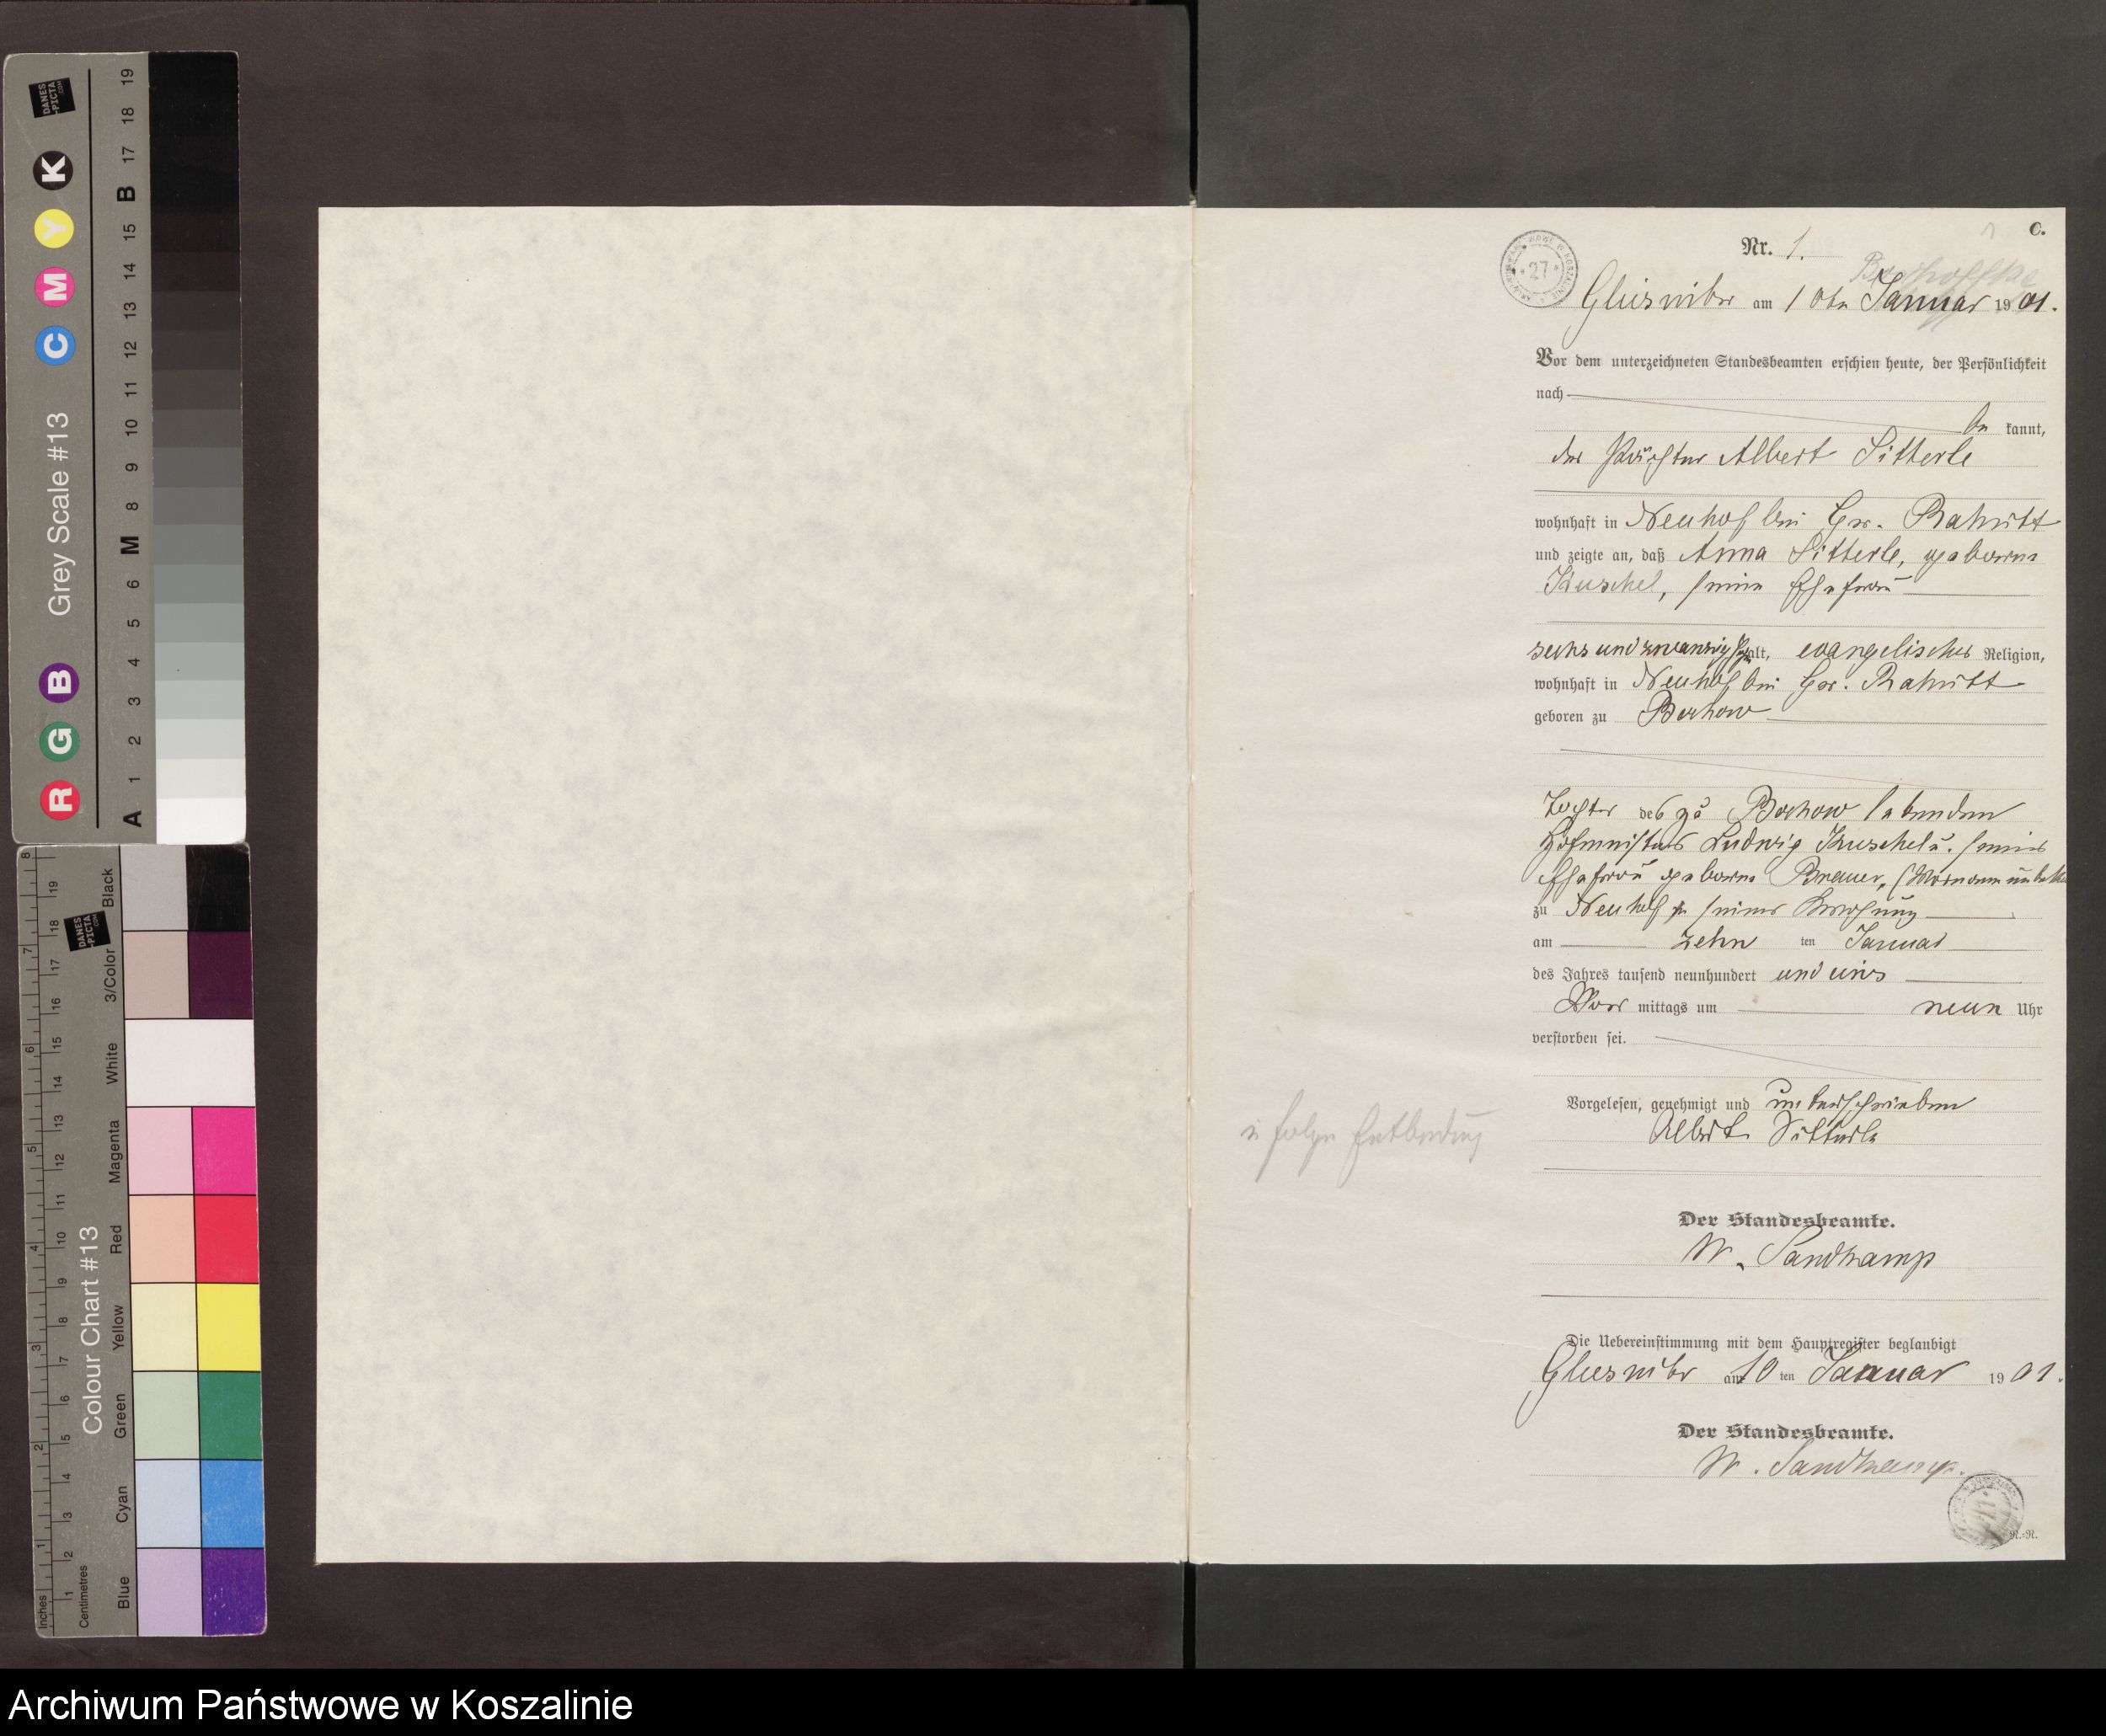 DANES
-PICTA
.COM
Grey Scale #13
R G B C M Y K
A 1 2 3 4 5 6 M 8 9 10 11 12 13 14 15 B 17 18 19
Colour Chart #13
DANES
-PICTA
.COM
Blue Cyan Green Yellow Red Magenta White 3/Color Black
Inches 1 2 3 4 5 6 7 8
Centimetres 1 2 3 4 5 6 7 8 9 10 11 12 13 14 15 16 17 18 19
C.
Nr. 1.
27
am 10ten Januar 1901.
Vor dem unterzeichneten Standesbeamten erschien heute, der Persönlichkeit
nach
be kannt,
der Albert Sitterle
wohnhaft in Neuhof bei Gr. Rakitt
und zeigte an, daß Anna Sitterle, geborene
Kuschel, seine Ehefrau
sechsundzwanzig Jahre alt, evangelischer Religion,
wohnhaft in Neuhof bei Gr. Rakitt
geboren zu Bochow
Tochter des zu Bochow lebenden
Hofmeisters Ludwig Kuschel u. seiner
Ehefrau geborne (Vorname
zu Neuhof in seiner Wohnung
am zehn ten Januar
des Jahres tausend neunhundert und eins
Vor mittags um neun Uhr
verstorben sei.
Vorgelesen, genehmigt und unterschrieben
Albert Sitterle
in folge Entbindung
Der Standesbeamte.
W. Sandkamp
Die Uebereinstimmung mit dem Hauptregister beglaubigt
am 10 ten Januar 1901.
Der Standesbeamte.
W. Sandkamp.
R.-R.
Archiwum Państwowe w Koszalinie